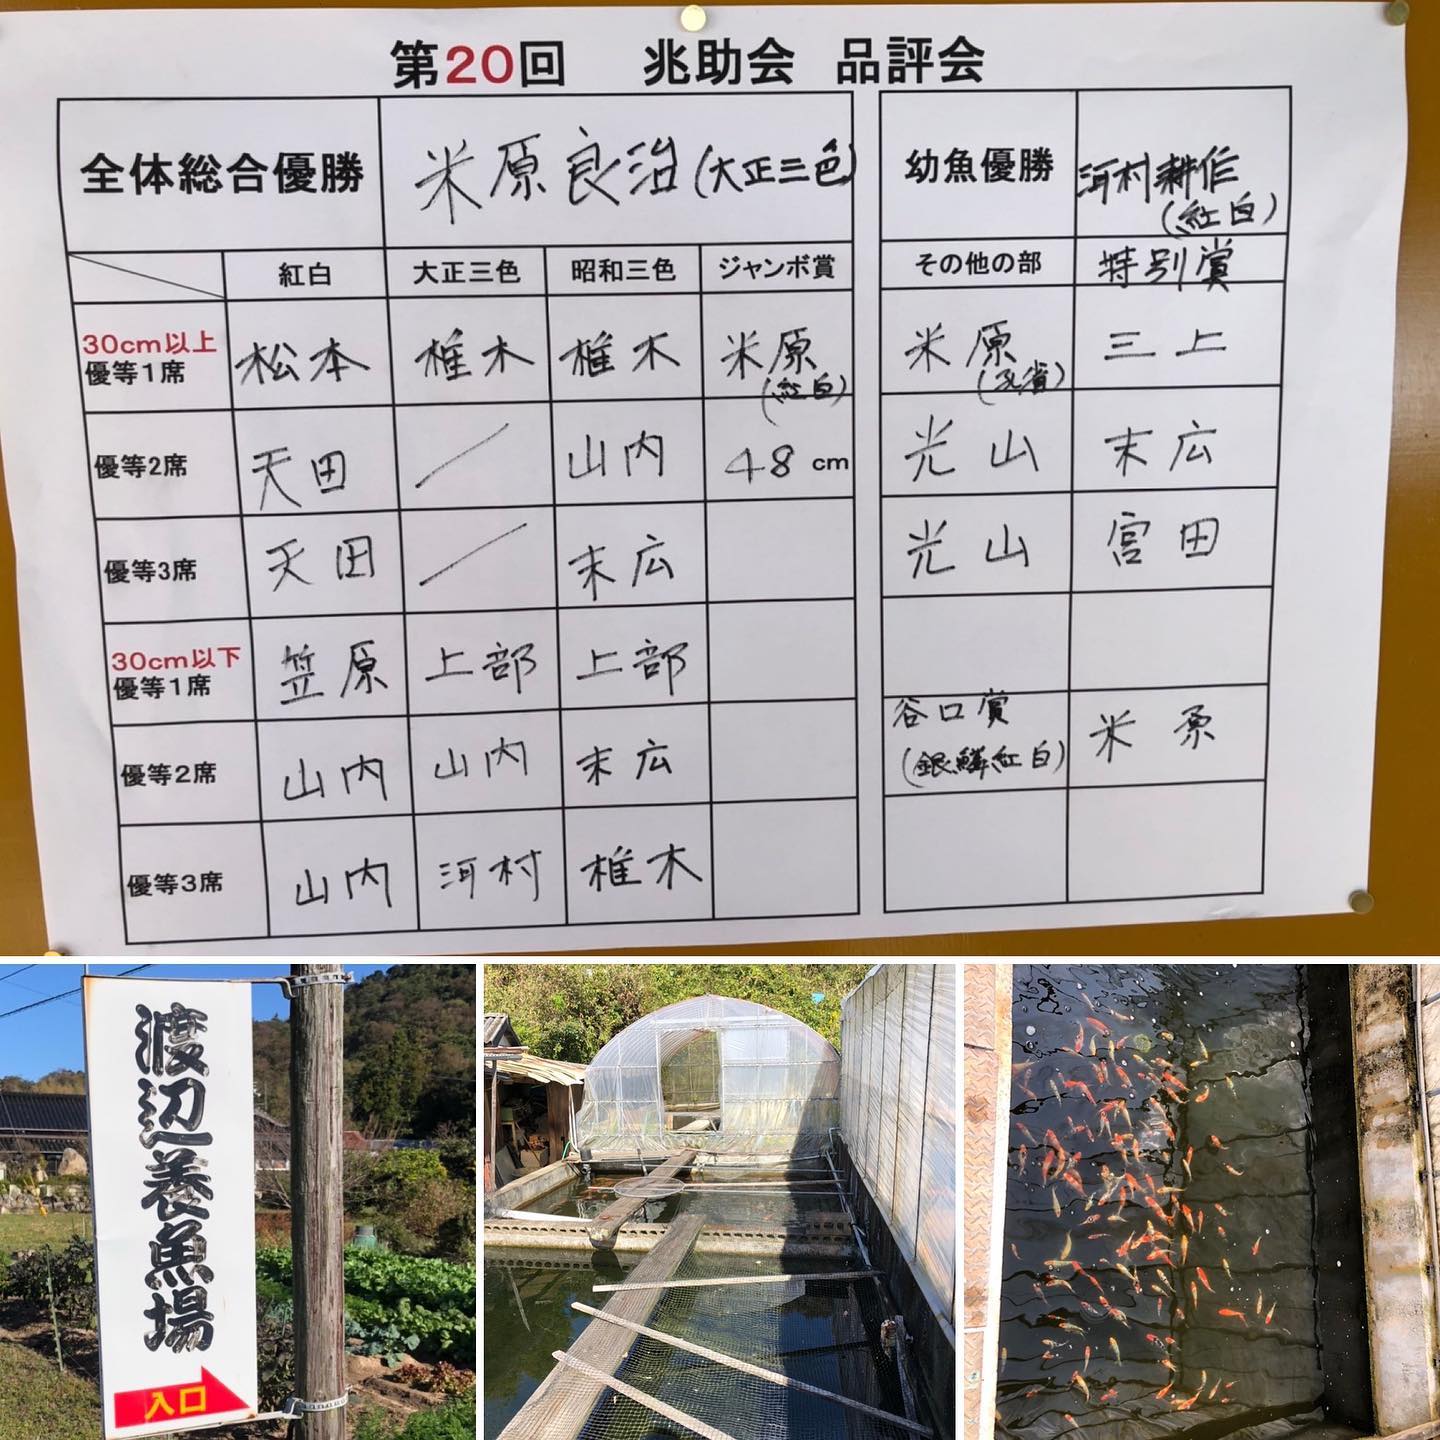 第20回 兆助会 品評会
全体総合優勝 米原良治(大正三色) 幼魚優勝 河村耕作
(紅白)
紅白 大正三色 昭和三色 ジャンボ賞 その他の部 特別賞
30cm以上
優等1席 松本 椎木 椎木 米原 米原 三上
(紅白)
優等2席 天田 / 山内 48cm 光山 末広
優等3席 天田 / 末広 光山 宮田
30cm以下
優等1席 笠原 上部 上部
谷口賞
優等2席 山内 山内 末広 (銀鱗紅白) 米原
優等3席 山内 河村 椎木
渡辺養魚場
入口